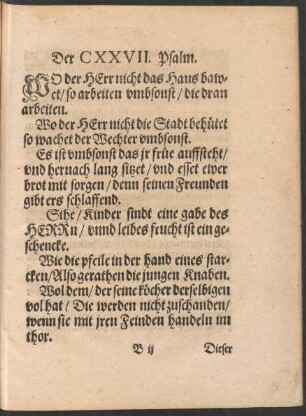 Der CXXVII. Psalm.
WO der HErr nicht das Haus baw-
et/ so arbeiten vmbsonst/ die dran
arbeiten.
Wo der HErr nicht die Stadt behütet
so wachet der Wechter vmbsonst.
Es ist vmbsonst das jr früe auffsteht/
vnd hernach lang sitzet/ vnd esset ewer
brot mit sorgen/ denn seinen Freunden
gibt ers schlaffend.
Sihe/ Kinder sindt eine gabe des
HERRn/ vnnd leibes frucht ist ein ge-
schencke.
Wie die pfeile in der hand eines star-
cken/ Also gerathen die jungen Knaben.
Wol dem/ der seine köcher derselbigen
vol hat/ Die werden nicht zuschanden/
wenn sie mit jren Feinden handeln im
thor.
B ij Dieser